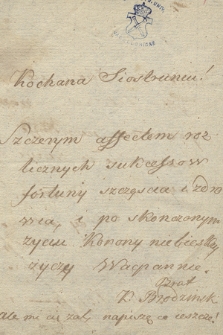 Kochana Siostruniu!
Szczerym affectem roz
licznych sukcessow
fortuny szczęscia i zdro
wia, i po skonczonym
zyciu Korony niebieskiey
zyczy Wacpannie.
Brat
Brodzinsk
Ale mi cię żal, napiszę co jeszcze!